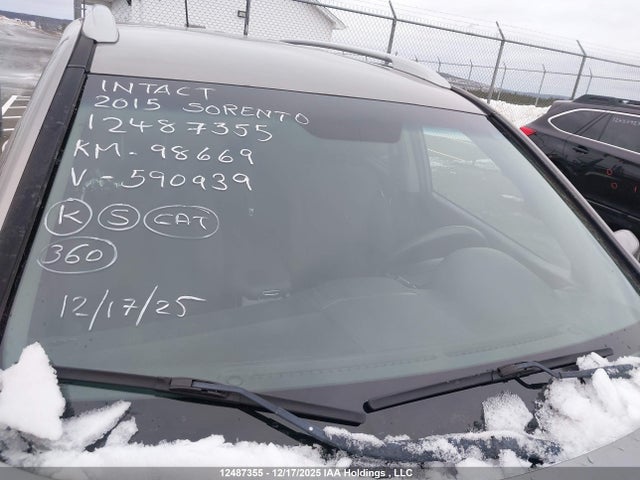 INTACT
2015 SORENTO
12487355
KM-98669
V-590939
K S CAT
360
12/17/25
12487355 - 12/17/2025 IAA Holdings, LLC